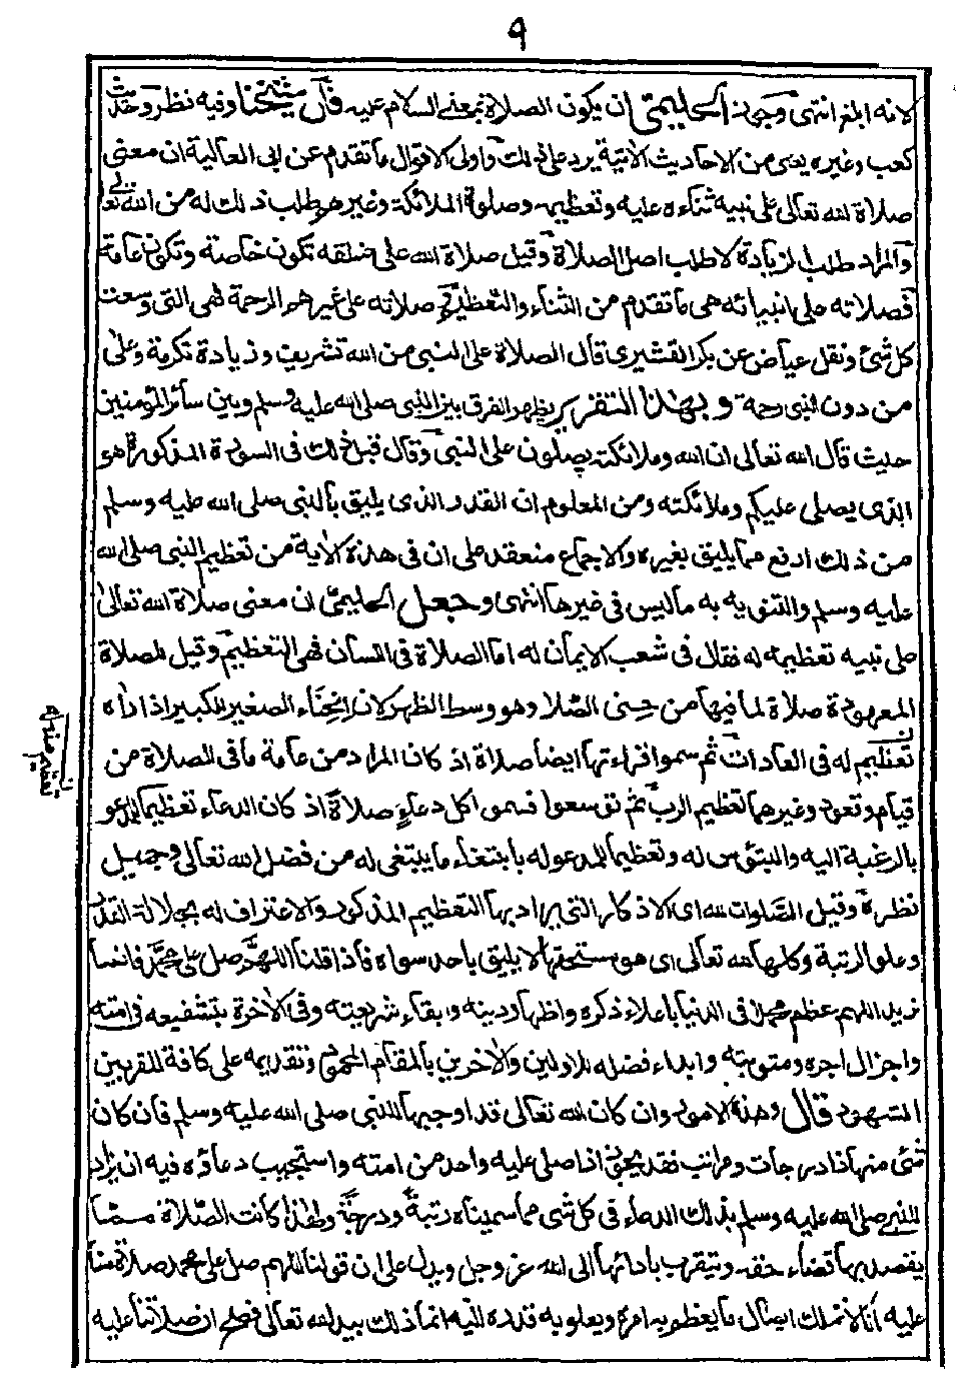 ٩
لانه ابلغ انتهى وجوز الحليمى ان يكون الصلاة بمعنى السلام عليه قال شيخنا وفيه نظر وحديث
كعب وغيره يعنى من الاحاديث الاتية يرد على ذلك واولى الاقوال ما تقدم عن ابى العالية ان معنى
صلاة الله تعالى على نبيه ثناءه عليه وتعظيمه وصلوة الملائكة وغيرهم طلب ذلك له من الله تعالى
والمراد طلب الزيادة لا طلب اصل الصلاة وقيل صلاة الله على خلقه تكون خاصة وتكون عامة
فصلاته على انبيائه هى ما تقدم من الثناء والتعظيم وصلاته على غيرهم الرحمة فهى التى وسعت
كل شئ ونقل عياض عن بكر القشيرى قال الصلاة على النبى من الله تشريف وزيادة تكرمة وعلى
من دون النبى رحمة وبهذا التقرير يظهر الفرق بين النبى صلى الله عليه وسلم وبين سائر المؤمنين
حيث قال الله تعالى ان الله وملائكته يصلون على النبى وقال قبل ذلك فى السورة المذكورة هو
الذى يصلى عليكم وملائكته ومن المعلوم ان القدر الذى يليق بالنبى صلى الله عليه وسلم
من ذلك ارفع مما يليق بغيره والاجماع منعقد على ان فى هذة الاية من تعظيم النبى صلى الله
عليه وسلم والتنويه به ما ليس فى غيرها انتهى وجعل الحليمى ان معنى صلاة الله تعالى
على نبيه تعظيمه له فقال فى شعب الايمان له اما الصلاة فى اللسان فهى التعظيم وقيل للصلاة
المعهودة صلاة لما فيها من حنى الصلا وهو وسط الظهر لان انحناء الصغير للكبير اذا راه
تعظيم له فى العادات ثم سموا قراءتها ايضا صلاة اذ كان المراد من عامة ما فى الصلاة من
قيام وقعود وغيرهما تعظيم الرب ثم توسعوا فسموا كل دعاء صلاة اذ كان الدعاء تعظيما للمدعو
بالرغبة اليه والتبؤس له وتعظيما للمدعو له بابتغاء ما يبتغى له من فضل الله تعالى وجميل
نظره وقيل الصلوات لله اى الاذكار التى يراد بها التعظيم المذكور والاعتراف له بجلالة القدر
وعلو الرتبة وكلها لله تعالى اى هو مستحقها لا يليق باحد سواه فاذا قلنا اللهم صل على محمد فانما
نريد اللهم عظم محمدا فى الدنيا باعلاء ذكره واظهار دينه وابقاء شريعته وفى الاخرة بتشفيعه فى امته
واجزال اجره ومثوبته وابداء فضله للاولين والاخرين بالمقام المحمود وتقديمه على كافة المقربين
الشهود قال وهذه الامور وان كان الله تعالى قد اوجبها للنبى صلى الله عليه وسلم فان كان
شئ منها ذا درجات ومراتب فقد يجوز اذا صلى عليه واحد من امته واستجيب دعاؤه فيه ان يزاد
للنبى صلى الله عليه وسلم بذلك الدعاء فى كل شى مما سميناه رتبة ودرجة ولهذا كانت الصلاة مما
يقصد بها قضاء حقه ويتقرب بادائها الى الله عز وجل ويدل على ان قولنا اللهم صل على محمد صلاة منا
عليه انا لا نملك ايصال ما يعظم به امره ويعلو به قدره اليه انما ذلك بيد الله تعالى فصح ان صلاتنا عليه